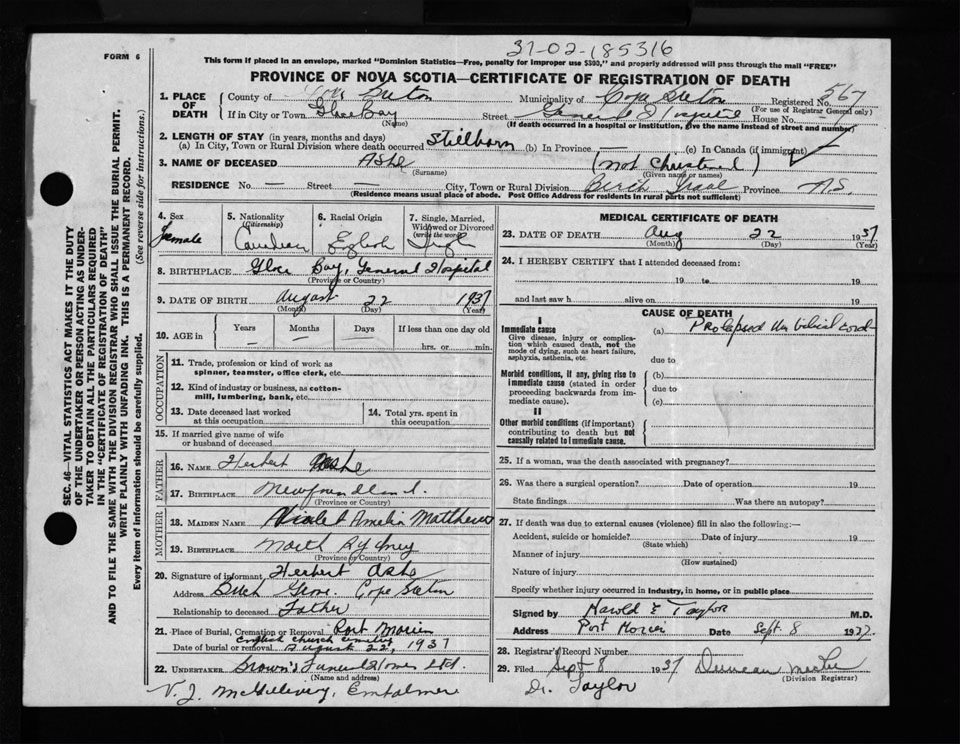 31-02-185316
FORM 6
This form if placed in an envelope, marked "Dominion Statistics—Free, penalty for improper use $300," and properly addressed will pass through the mail "FREE"
PROVINCE OF NOVA SCOTIA—CERTIFICATE OF REGISTRATION OF DEATH
1. PLACE OF DEATH
County of Cape Breton Municipality of Cape Breton Registered No. 567
(For use of Registrar General only)
If in City or Town Glace Bay Street General Hospital House No.
(Name) (If death occurred in a hospital or institution, give the name instead of street and number)
2. LENGTH OF STAY (in years, months and days)
(a) In City, Town or Rural Division where death occurred Stillborn (b) In Province — (c) In Canada (if immigrant)
3. NAME OF DECEASED Ashe (not Christened)
(Surname) (Given name or names)
RESIDENCE No. — Street — City, Town or Rural Division Birch Grove Province N.S.
(Residence means usual place of abode. Post Office Address for residents in rural parts not sufficient)
SEC. 46—VITAL STATISTICS ACT MAKES IT THE DUTY
OF THE UNDERTAKER OR PERSON ACTING AS UNDER-
TAKER TO OBTAIN ALL THE PARTICULARS REQUIRED
IN THE "CERTIFICATE OF REGISTRATION OF DEATH"
AND TO FILE THE SAME WITH THE DIVISION REGISTRAR WHO SHALL ISSUE THE BURIAL PERMIT.
WRITE PLAINLY WITH UNFADING INK. THIS IS A PERMANENT RECORD.
Every item of information should be carefully supplied. (See reverse side for instructions.)
4. Sex 5. Nationality (Citizenship) 6. Racial Origin 7. Single, Married, Widowed or Divorced (write the word)
Female Canadian English Single
8. BIRTHPLACE Glace Bay, General Hospital
(Province or Country)
9. DATE OF BIRTH August 22 1937
(Month) (Day) (Year)
10. AGE in Years Months Days If less than one day old
— — — hrs. or min.
OCCUPATION
11. Trade, profession or kind of work as
spinner, teamster, office clerk, etc.
12. Kind of industry or business, as cotton-
mill, lumbering, bank, etc.
13. Date deceased last worked
at this occupation
14. Total yrs. spent in
this occupation
15. If married give name of wife
or husband of deceased
FATHER
16. NAME Herbert Ashe
17. BIRTHPLACE Newfoundland.
(Province or Country)
MOTHER
18. MAIDEN NAME Violet Amelia Matthews
19. BIRTHPLACE North Sydney
(Province or Country)
20. Signature of informant Herbert Ashe
Address Birch Grove. Cape Breton
Relationship to deceased Father
21. Place of Burial, Cremation or Removal Port Morien
English Church Cemetery
Date of burial or removal August 22, 1937
22. UNDERTAKER Brown's Funeral Home Ltd.
(Name and address)
V. J. McGillivery, Embalmer
MEDICAL CERTIFICATE OF DEATH
23. DATE OF DEATH Aug 22 1937
(Month) (Day) (Year)
24. I HEREBY CERTIFY that I attended deceased from:
19 to 19
and last saw h alive on 19
CAUSE OF DEATH
I
Immediate cause
Give disease, injury or complica-
tion which caused death, not the
mode of dying, such as heart failure,
asphyxia, asthenia, etc.
(a) Prolapsed Umbilical cord
due to
Morbid conditions, if any, giving rise to
immediate cause (stated in order
proceeding backwards from
immediate cause).
(b)
due to
(c)
II
Other morbid conditions (if important)
contributing to death but not
causally related to immediate cause.
25. If a woman, was the death associated with pregnancy?
26. Was there a surgical operation? Date of operation 19
State findings Was there an autopsy?
27. If death was due to external causes (violence) fill in also the following:—
Accident, suicide or homicide? Date of injury 19
(State which)
Manner of injury
(How sustained)
Nature of injury
Specify whether injury occurred in industry, in home, or in public place
Signed by Harold E Taylor M.D.
Address Port Morien Date Sept. 8 1937.
28. Registrar's Record Number
29. Filed Sept 8 1937 Duncan
(Division Registrar)
Dr. Taylor